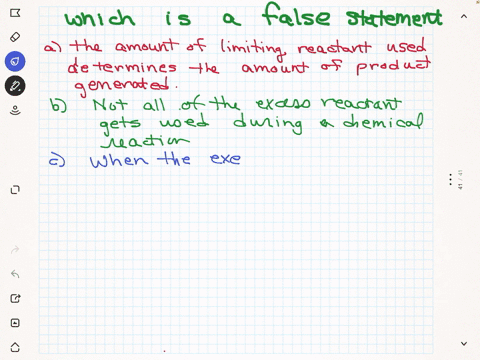 which is a false statement
a) the amount of limiting reactant used
determines the amount of product
generated.
b) Not all of the excess reactant
gets used during a chemical
reaction
c) When the exe